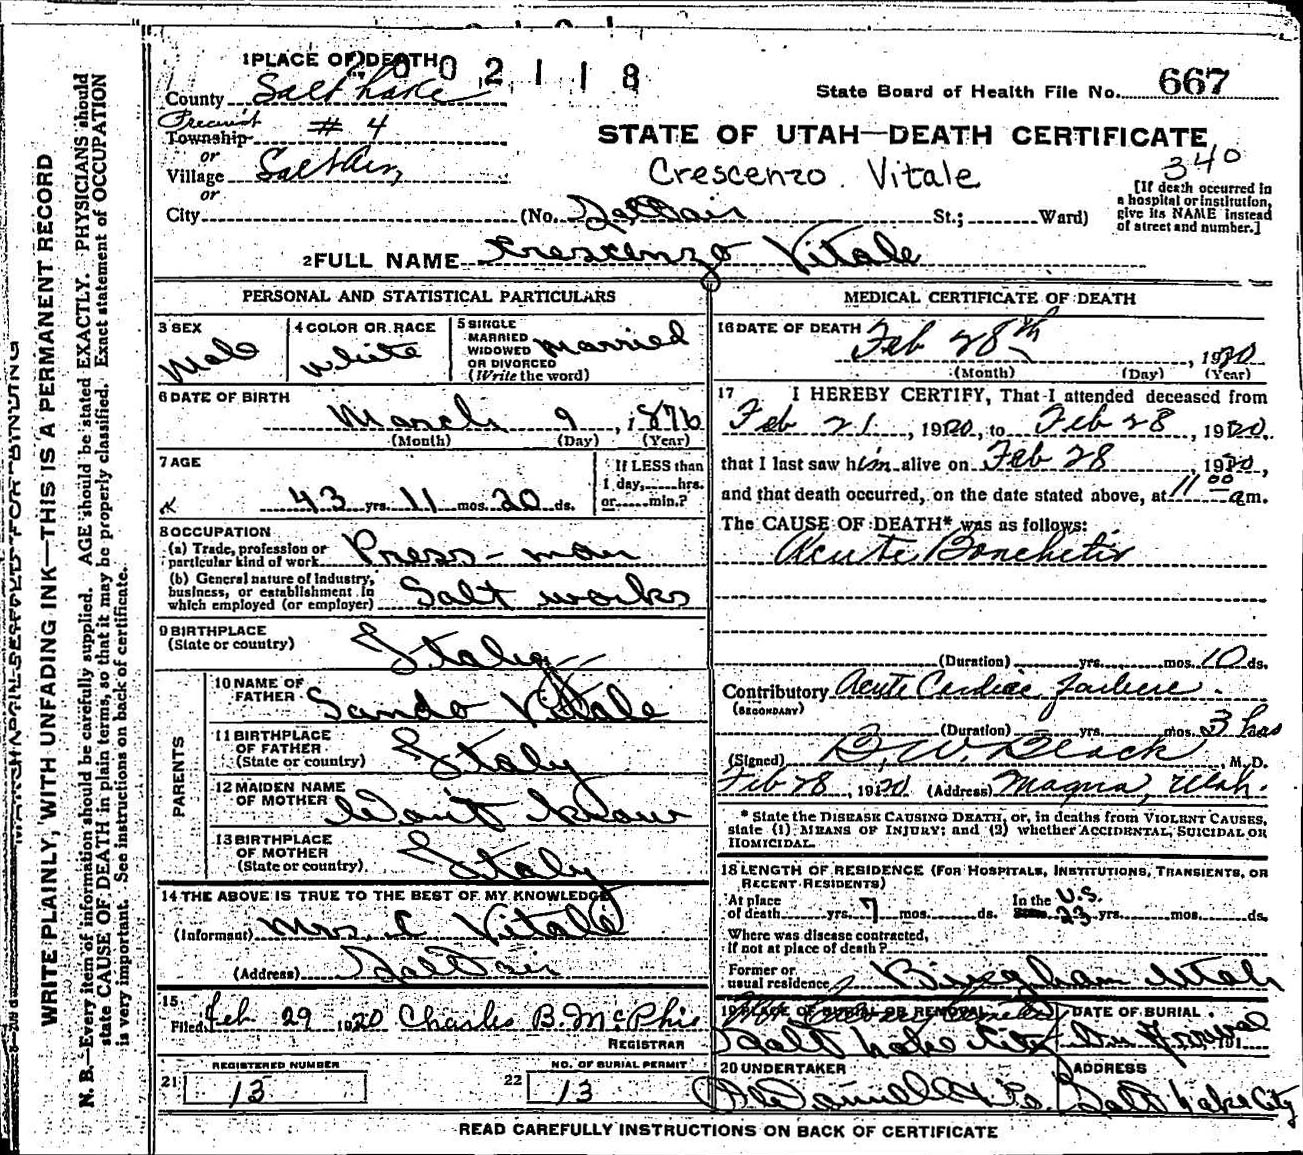 2002118
1 PLACE OF DEATH
County Salt Lake
State Board of Health File No. 667
Precinct
Township # 4
STATE OF UTAH—DEATH CERTIFICATE
340
or
Village Saltair,
Crescenzo Vitale
or
City (No. Saltair St.; Ward)
[If death occurred in
a hospital or institution,
give its NAME instead
of street and number.]
2 FULL NAME Crescenzo Vitale
PERSONAL AND STATISTICAL PARTICULARS
3 SEX
Male
4 COLOR OR RACE
White
5 SINGLE
MARRIED
WIDOWED
OR DIVORCED
(Write the word)
Married
6 DATE OF BIRTH
March 9, 1876
(Month) (Day) (Year)
7 AGE
43 yrs. 11 mos. 20 ds.
If LESS than
1 day, hrs.
or min.?
8 OCCUPATION
(a) Trade, profession or
particular kind of work Press-man
(b) General nature of industry,
business, or establishment in
which employed (or employer) Salt works
9 BIRTHPLACE
(State or country) Italy
PARENTS
10 NAME OF
FATHER Sando Vitale
11 BIRTHPLACE
OF FATHER
(State or country) Italy
12 MAIDEN NAME
OF MOTHER Won't know
13 BIRTHPLACE
OF MOTHER
(State or country) Italy
14 THE ABOVE IS TRUE TO THE BEST OF MY KNOWLEDGE
(Informant) Mrs. C Vitale
(Address) Saltair
15
Filed Feb 29 1920 Charles B. McPhie
REGISTRAR
REGISTERED NUMBER
21 13
NO. OF BURIAL PERMIT
22 13
MEDICAL CERTIFICATE OF DEATH
16 DATE OF DEATH
Feb 28th, 1920
(Month) (Day) (Year)
17 I HEREBY CERTIFY, That I attended deceased from
Feb 21, 1920, to Feb 28, 1920,
that I last saw him alive on Feb 28, 1920,
and that death occurred, on the date stated above, at 11 00 am.
The CAUSE OF DEATH* was as follows:
Acute Bonchetis
(Duration) yrs. mos. 10 ds.
Contributory Acute Cardiac failure.
(SECONDARY)
(Duration) yrs. mos. 3 hrs
(Signed) B. W. Black, M. D.
Feb 28, 1920 (Address) Magna, Utah.
* State the DISEASE CAUSING DEATH, or, in deaths from VIOLENT CAUSES,
state (1) MEANS OF INJURY; and (2) whether ACCIDENTAL, SUICIDAL OR
HOMICIDAL.
18 LENGTH OF RESIDENCE (FOR HOSPITALS, INSTITUTIONS, TRANSIENTS, OR
RECENT RESIDENTS)
At place
of death yrs. 7 mos. ds.
In the U.S.
State 23 yrs. mos. ds.
Where was disease contracted,
if not at place of death?
Former or
usual residence Bingham Utah
19 PLACE OF BURIAL OR REMOVAL
Salt Lake City
DATE OF BURIAL
20 UNDERTAKER
ADDRESS
Salt Lake City
READ CAREFULLY INSTRUCTIONS ON BACK OF CERTIFICATE
MARGIN RESERVED FOR BINDING
WRITE PLAINLY, WITH UNFADING INK—THIS IS A PERMANENT RECORD
N. B.—Every item of information should be carefully supplied. AGE should be stated EXACTLY. PHYSICIANS should
state CAUSE OF DEATH in plain terms, so that it may be properly classified. Exact statement of OCCUPATION
is very important. See instructions on back of certificate.